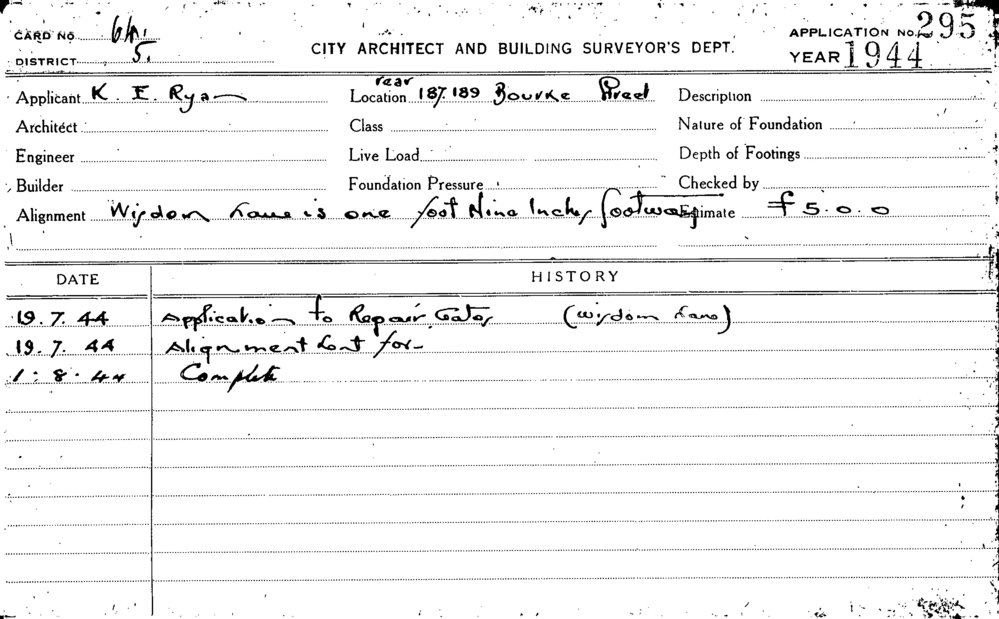 CARD No 6A1
DISTRICT 5.
CITY ARCHITECT AND BUILDING SURVEYOR'S DEPT.
APPLICATION No. 295
YEAR 1944
Applicant K. E. Ryan
rear
Location 187.189 Bourke Street
Description
Architect
Class
Nature of Foundation
Engineer
Live Load
Depth of Footings
Builder
Foundation Pressure
Checked by
Alignment Wisdom Lane is one foot Nine Inches footway
Estimate £5.0.0
DATE HISTORY
19.7.44 Application to Repair Gates (Wisdom Lane)
19.7.44 Alignment for
1.8.44 Complete